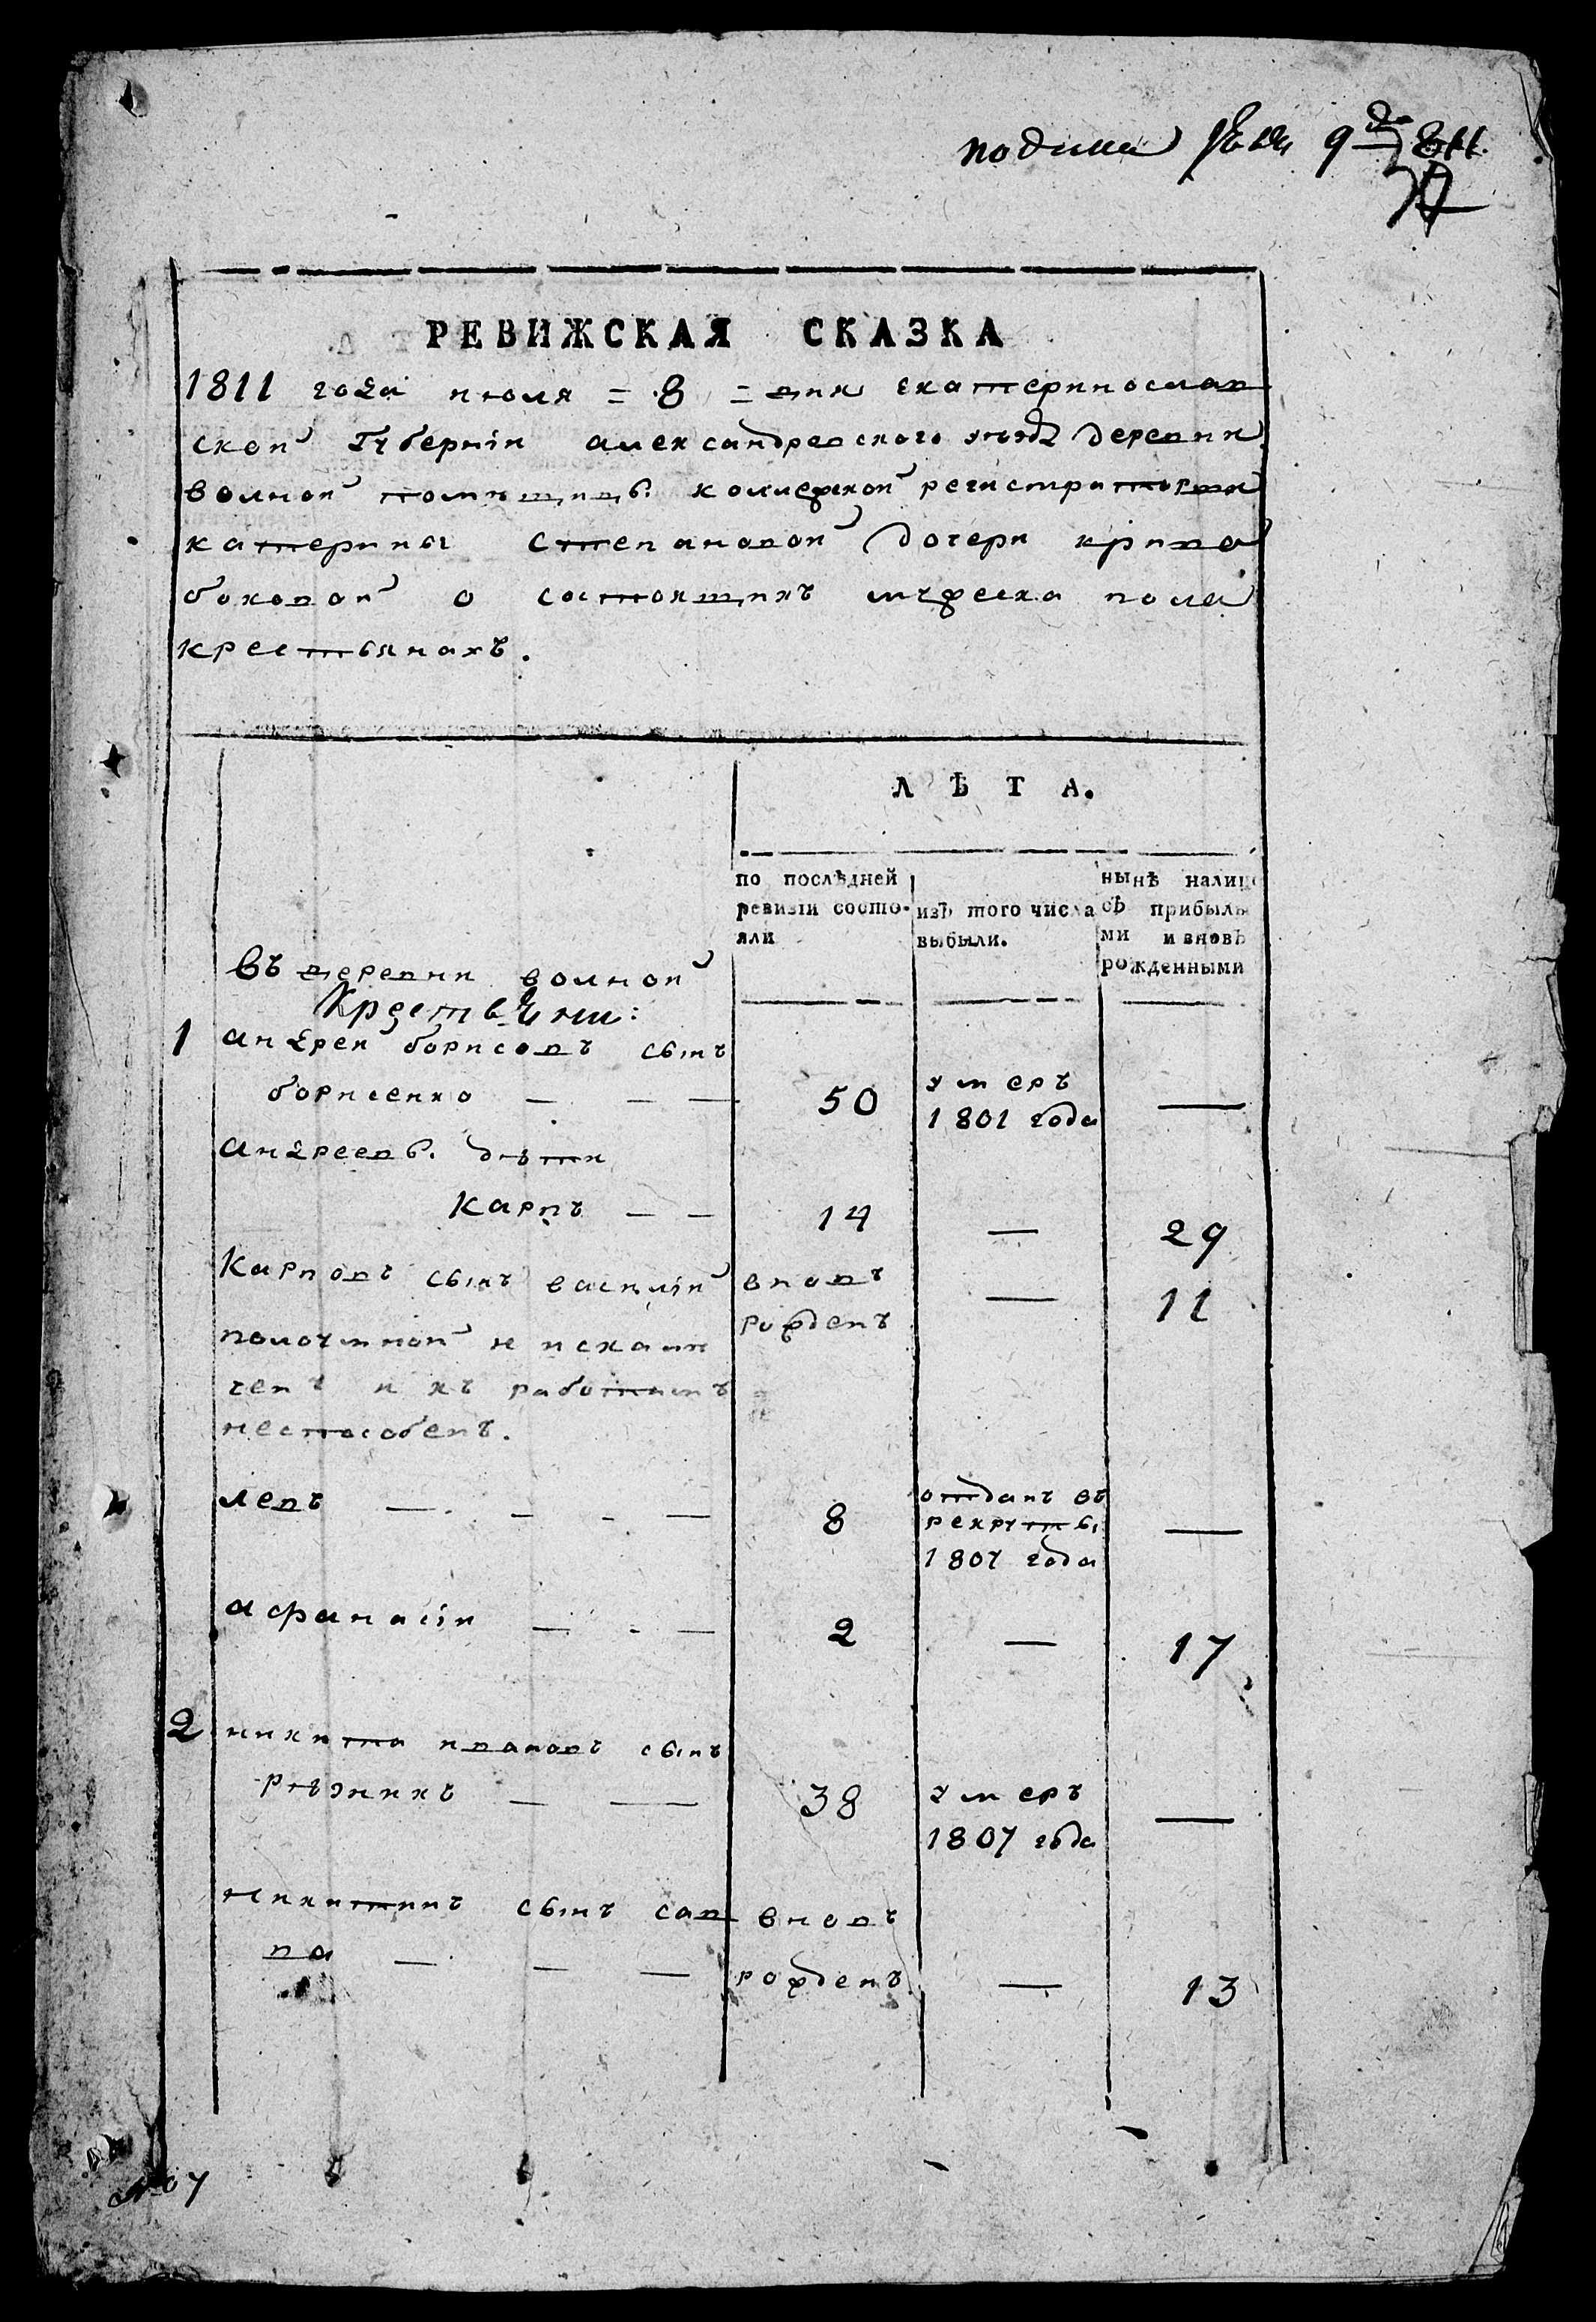 РЕВИЖСКАЯ СКАЗКА
1811 года июля = 8 = дня екатеринослав
ской Губерніи александровского уѣзда деревни
волной помѣщицы колежской регистраторши
катерины степановой дочери крива
боковой о состоящихъ мужеска пола
крестьянахъ.
ЛѢТА.
по послѣдней
ревизіи состо-
яли
изъ того числа
выбыли.
нынѣ налиц
съ прибылы
ми и вновь
рожденными
въ деревни волной
Крестьѧни:
1 андрей борисовъ сынъ
борисенко — — — 50 умеръ 1801 года —
андреевы дѣти
Карпъ — — 14 — 29
Карповъ сынъ василій вновъ рожденъ — 11
полоумной и искалѣ
ченъ и къ работамъ
неспособенъ.
левъ — - - — 8 отданъ въ рекруты 1807 года —
афанасій — - — 2 — 17
2 никита ивановъ сынъ
рѣзникъ — — 38 умеръ 1807 года —
никитинъ сынъ сав
ва — — — вновъ рожденъ — 13
№ 7